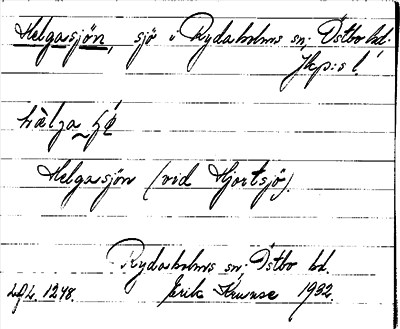 Helgasjön, sjö i Rydaholms sn; Östbo hd.
Jkp:s l.
Helgasjön (vid Hjortsjö).
Rydaholms sn; Östbo hd.
1248. Erik 1932.